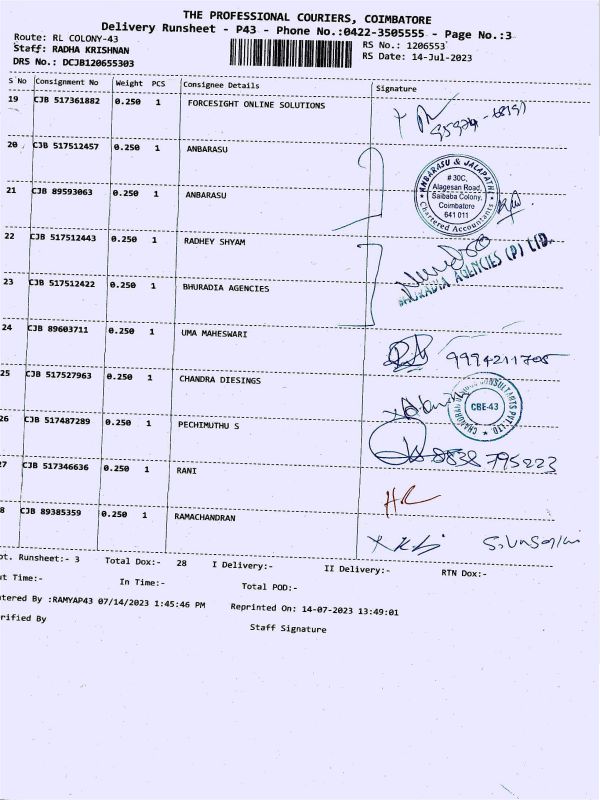 THE PROFESSIONAL COURIERS, COIMBATORE
Delivery Runsheet - P43 - Phone No.:0422-3505555 - Page No.:3
Route: RL COLONY-43
RS No.: 1206553
Staff: RADHA KRISHNAN
RS Date: 14-Jul-2023
DRS No.: DCJB120655303
S No Consignment No Weight PCS Consignee Details Signature
19 CJB 517361882 0.250 1 FORCESIGHT ONLINE SOLUTIONS
20 CJB 517512457 0.250 1 ANBARASU
ANBARASU & JALAPATH
# 30C,
Alagesan Road,
Saibaba Colony,
Coimbatore
641 011
Chartered Accountants
21 CJB 89593063 0.250 1 ANBARASU
22 CJB 517512443 0.250 1 RADHEY SHYAM
23 CJB 517512422 0.250 1 BHURADIA AGENCIES
BHURADIA AGENCIES (P) LTD.
24 CJB 89603711 0.250 1 UMA MAHESWARI
9994211705
25 CJB 517527963 0.250 1 CHANDRA DIESINGS
CONSULTANTS PVT LTD
CBE-43
26 CJB 517487289 0.250 1 PECHIMUTHU S
8838 795223
27 CJB 517346636 0.250 1 RANI
8 CJB 89385359 0.250 1 RAMACHANDRAN
ot. Runsheet:- 3 Total Dox:- 28 I Delivery:- II Delivery:- RTN Dox:-
ut Time:- In Time:- Total POD:-
ntered By :RAMYAP43 07/14/2023 1:45:46 PM Reprinted On: 14-07-2023 13:49:01
rified By
Staff Signature